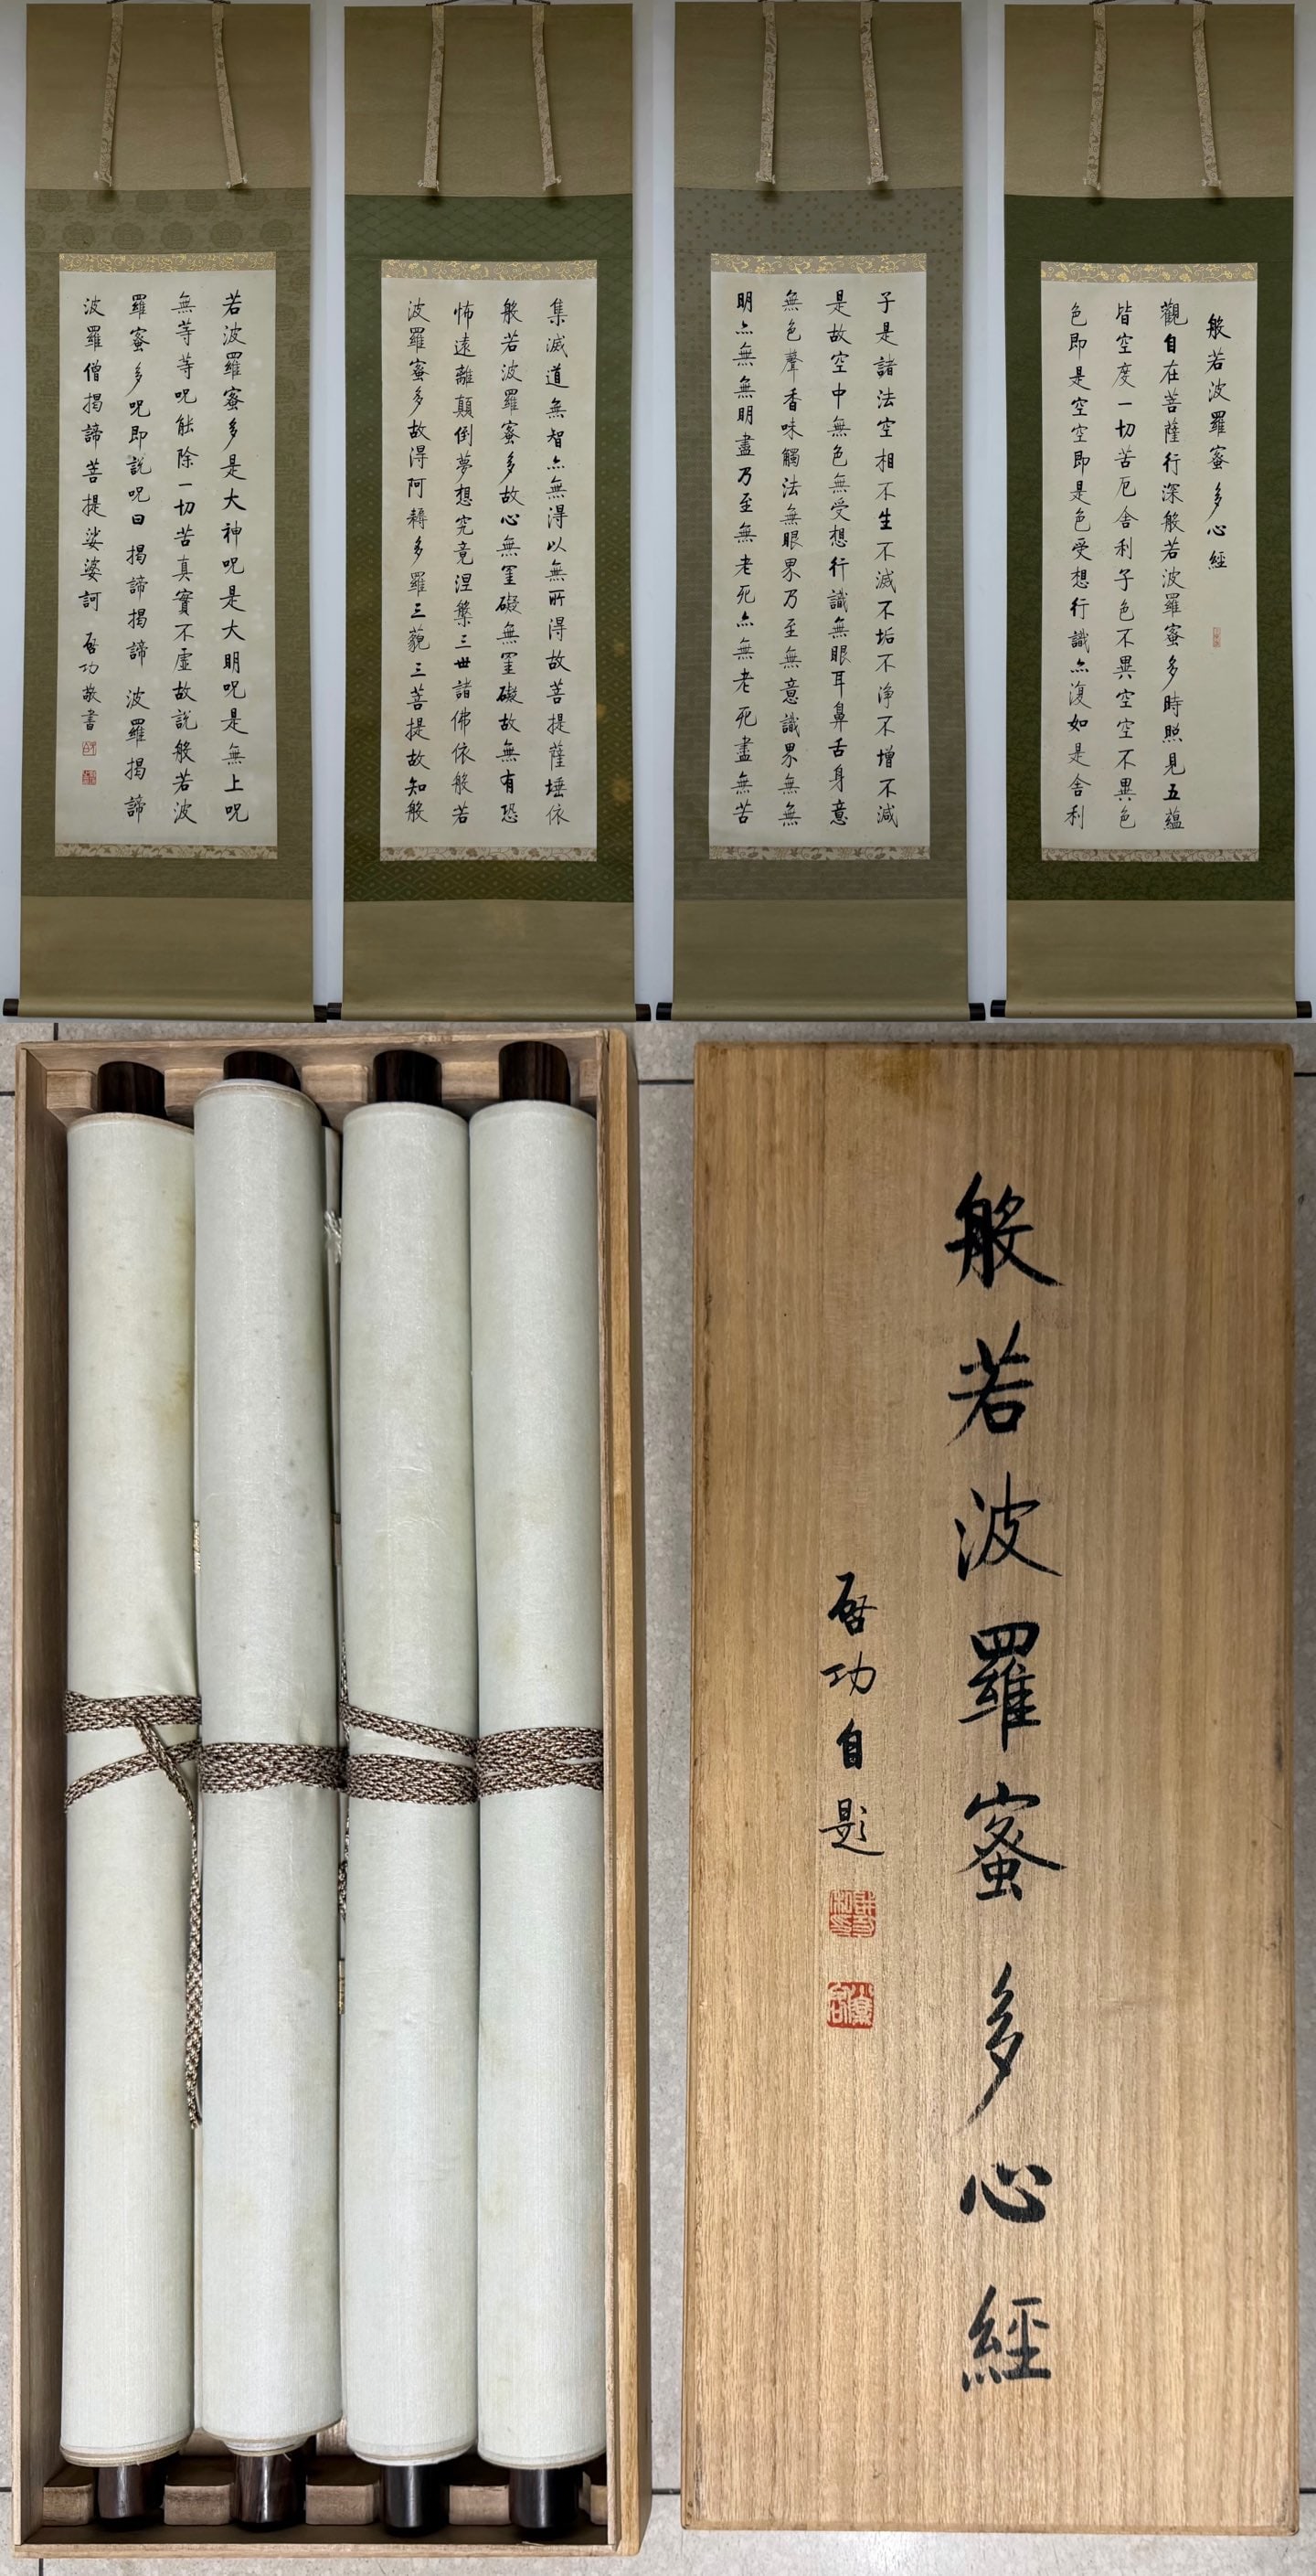 般若波羅蜜多心經
觀自在菩薩行深般若波羅蜜多時照見五蘊
皆空度一切苦厄舍利子色不異空空不異色
色即是空空即是色受想行識亦復如是舍利
子是諸法空相不生不滅不垢不淨不增不減
是故空中無色無受想行識無眼耳鼻舌身意
無色聲香味觸法無眼界乃至無意識界無無
明亦無無明盡乃至無老死亦無老死盡無苦
集滅道無智亦無得以無所得故菩提薩埵依
般若波羅蜜多故心無罣礙無罣礙故無有恐
怖遠離顛倒夢想究竟涅槃三世諸佛依般若
波羅蜜多故得阿耨多羅三藐三菩提故知般
若波羅蜜多是大神呪是大明呪是無上呪
無等等呪能除一切苦真實不虛故說般若波
羅蜜多呪即說呪曰 揭諦揭諦 波羅揭諦
波羅僧揭諦菩提娑婆訶 啓功敬書
般若波羅蜜多心經
啓功自題